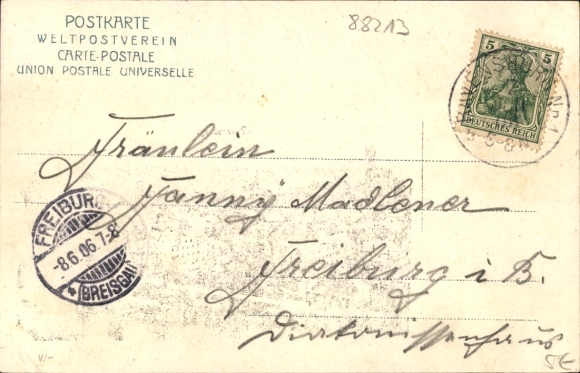 POSTKARTE
WELTPOSTVEREIN
CARTE-POSTALE
UNION POSTALE UNIVERSELLE
88213
5 5
DEUTSCHES REICH
Fräulein
Fanny Madlener
Freiburg i B.
Diakonissenhaus
FREIBURG
-8.6.06.7-8
BREISGAU
v/-
5€